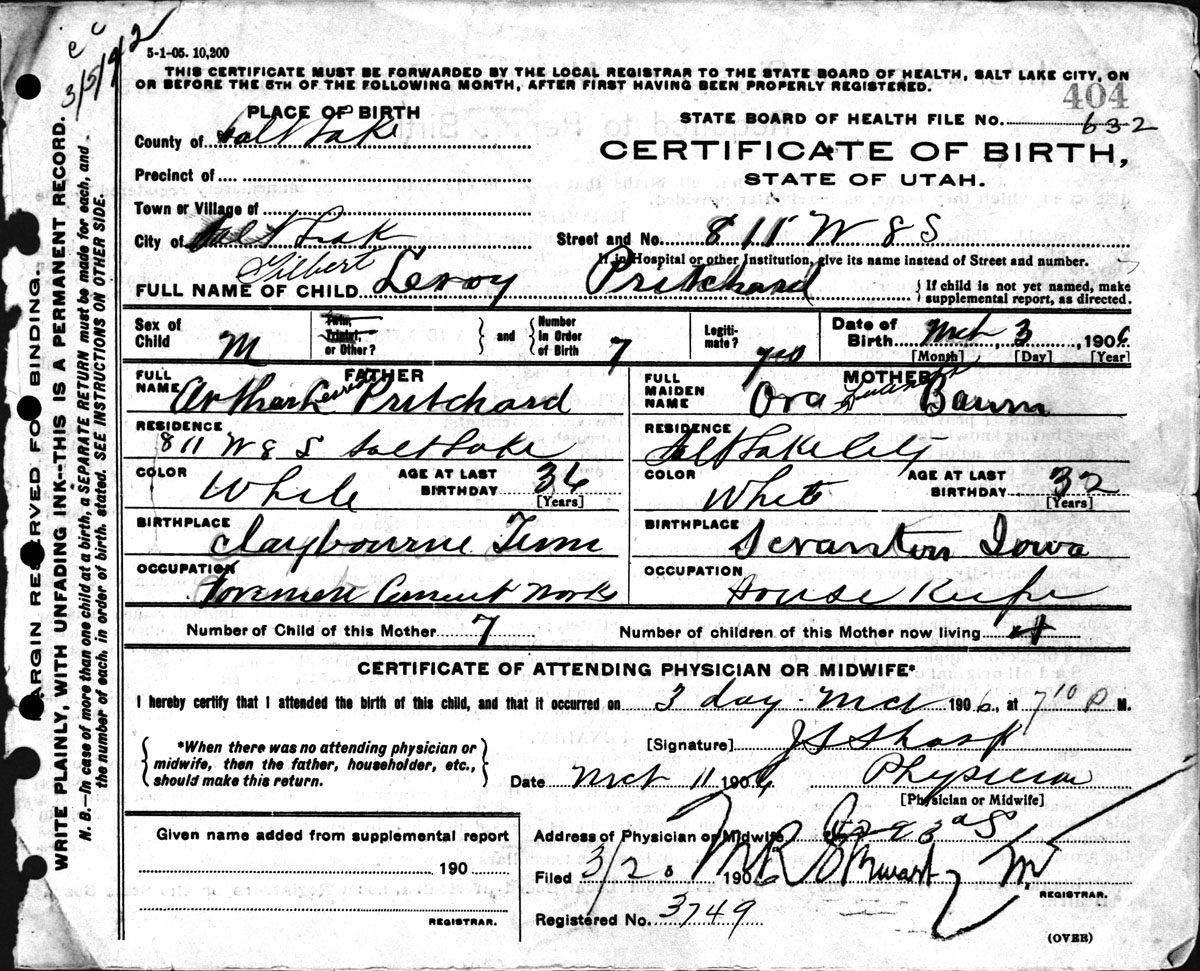 3/5/42
5-1-05. 10,200
THIS CERTIFICATE MUST BE FORWARDED BY THE LOCAL REGISTRAR TO THE STATE BOARD OF HEALTH, SALT LAKE CITY, ON
OR BEFORE THE 5TH OF THE FOLLOWING MONTH, AFTER FIRST HAVING BEEN PROPERLY REGISTERED.
404
PLACE OF BIRTH
STATE BOARD OF HEALTH FILE No. 632
County of Salt Lake
CERTIFICATE OF BIRTH,
Precinct of
STATE OF UTAH.
Town or Village of
City of Salt Lak
Street and No. 811 W 8 S
If in Hospital or other Institution, give its name instead of Street and number.
Gilbert
FULL NAME OF CHILD Leroy Pritchard
{ If child is not yet named, make
supplemental report, as directed.
Sex of Child M
Twin, Triplet, or Other? } and { Number in Order of Birth 7
Legiti- mate? yes
Date of Birth Mch 3, 1906
[Month] [Day] [Year]
FATHER
MOTHER
FULL NAME Arthur Pritchard
FULL MAIDEN NAME Ora Baum
RESIDENCE 811 W 8 S Salt Lake
RESIDENCE Salt Lake City
COLOR White
AGE AT LAST BIRTHDAY 36 [Years]
COLOR White
AGE AT LAST BIRTHDAY 32 [Years]
BIRTHPLACE Claybourne Tenn
BIRTHPLACE Scranton Iowa
OCCUPATION Foreman Cement Works
OCCUPATION House Keeper
Number of Child of this Mother 7
Number of children of this Mother now living 4
CERTIFICATE OF ATTENDING PHYSICIAN OR MIDWIFE*
I hereby certify that I attended the birth of this child, and that it occurred on 3 day Mch 1906, at 7 10 P M.
{ *When there was no attending physician or
midwife, then the father, householder, etc.,
should make this return. }
[Signature] J S Sharp
Date Mch 11 1906
Physician
[Physician or Midwife]
Given name added from supplemental report
190
REGISTRAR.
Address of Physician or Midwife
Filed 3/20 1906 M R Stewart
REGISTRAR.
Registered No. 3749
(OVER)
MARGIN RESERVED FOR BINDING.
WRITE PLAINLY, WITH UNFADING INK--THIS IS A PERMANENT RECORD.
N. B.—In case of more than one child at a birth, a SEPARATE RETURN must be made for each, and
the number of each, in order of birth, stated. SEE INSTRUCTIONS ON OTHER SIDE.